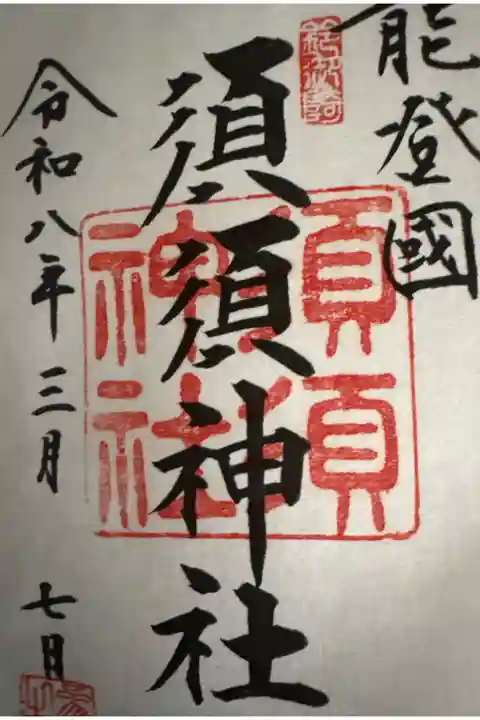 能登國
須須神社
須須
神社
令和八年三月
七日